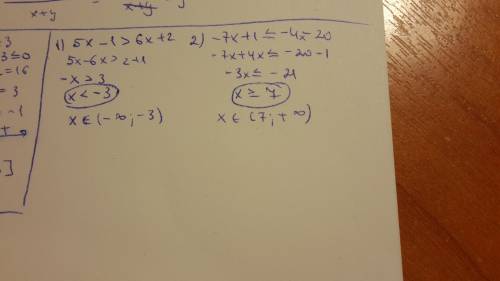 x+y x+y
3
3≤0
=16
=3
-1
1) 5x-1>6x+2
5x-6x>2+1
-x>3
x<-3
x∈(-∞;-3)
2) -7x+1≤-4x-20
-7x+4x≤-20-1
-3x≤-21
x≥7
x∈[7;+∞)